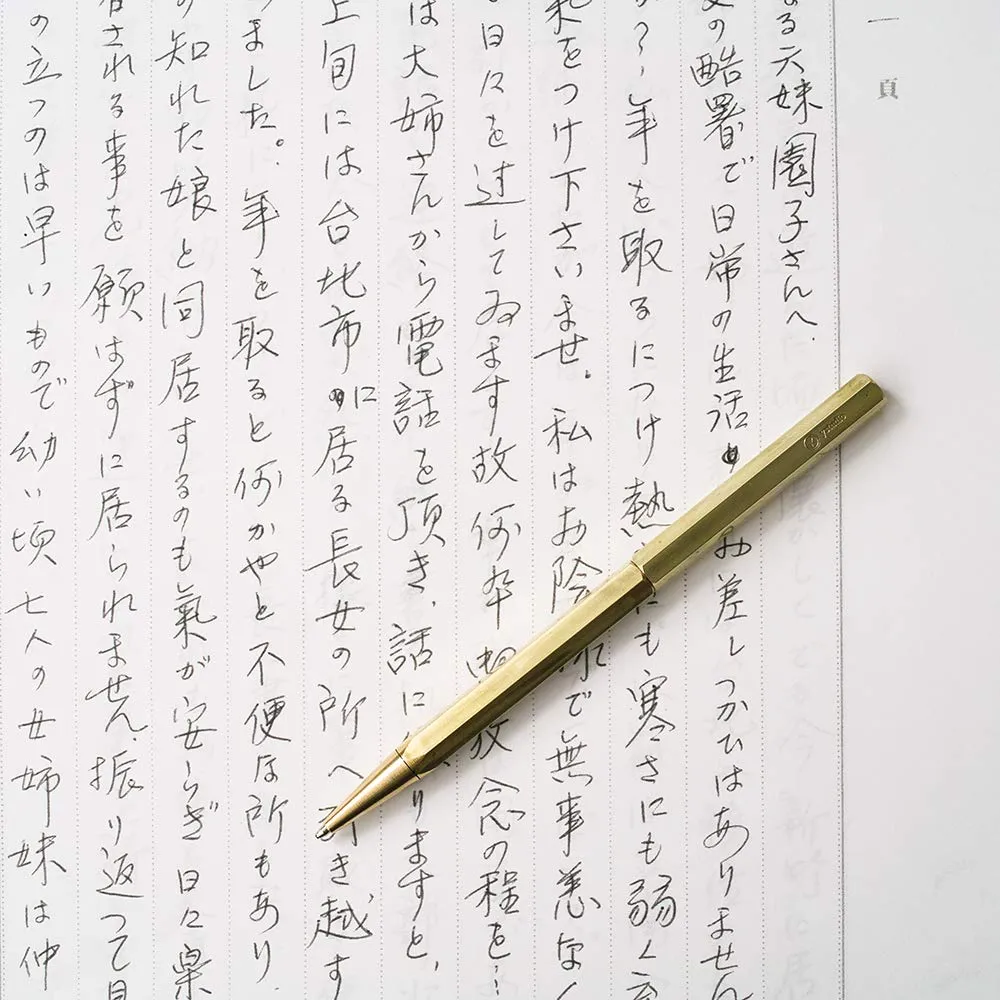 一頁
る六妹園子さんへ.
の酷署で日常の生活 お差しつかひはありません
?,年を取るにつけ熱 にも寒さにも弱く
をつけ下さいませ。私はお陰 で無事恙なく
日々を过してゐます故何卒 放念の程を…
は大姉さんから電話を頂き,話に りますと,
上旬には台北市に居る長女の所へ引き越す
ました。年を取ると何かやと不便な所もあり.
の知れた娘と同居するのも氣が安らぎ日々楽
される事を願はずに居られません.振り返って見
の立つのは早いもので幼い頃七人の女姉妹は仲